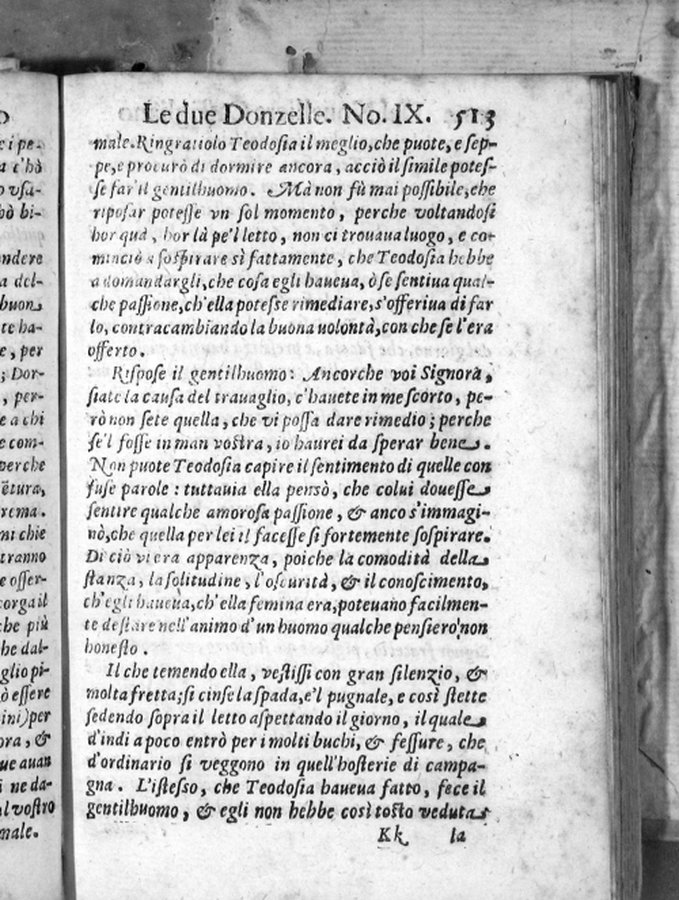 o
Le due Donzelle. No. IX. 513
e i pe-
a c'hò
o vsa-
hò bi-
endere
a del-
buon
te ha-
e, per
; Dor-
, per-
e a chi
e com-
perche
ẽtura,
rema.
ni chie
tranno
e offer-
corga il
che più
he dal-
glio pi-
ò essere
ini) per
ora, &
ue auan
i ne da-
l vostro
male.
male. Ringratiolo Teodosia il meglio, che puote, e sep-
pe, e procurò di dormire ancora, acciò il simile potes-
se far il gentilhuomo. Mà non fù mai possibile, che
riposar potesse vn sol momento, perche voltandosi
hor quà, hor là pe'l letto, non ci trouaua luogo, e co-
minciò a sospirare sì fattamente, che Teodosia hebbe
a domandargli, che cosa egli haueua, ò se sentiua qual-
che passione, ch'ella potesse rimediare, s'offeriua di far
lo, contracambiando la buona uolontà, con che se l'era
offerto.
Rispose il gentilhuomo: Ancorche voi Signora,
siate la causa del trauaglio, c'hauete in me scorto, pe-
rò non sete quella, che vi possa dare rimedio; perche
se'l fosse in man vostra, io haurei da sperar bene.
Non puote Teodosia capire il sentimento di quelle con
fuse parole: tuttauia ella pensò, che colui douesse
sentire qualche amorosa passione, & anco s'immagi-
nò, che quella per lei il facesse si fortemente sospirare.
Di ciò vi era apparenza, poiche la comodità della
stanza, la solitudine, l'oscurità, & il conoscimento,
ch'egli haueua, ch'ella femina era, poteuano facilmen-
te destare nell'animo d'un huomo qualche pensiero non
honesto.
Il che temendo ella, vestissi con gran silenzio, &
molta fretta; si cinse la spada, e'l pugnale, e così stette
sedendo sopra il letto aspettando il giorno, il quale
d'indi a poco entrò per i molti buchi, & fessure, che
d'ordinario si veggono in quell'hosterie di campa-
gna. L'istesso, che Teodosia haueua fatto, fece il
gentilhuomo, & egli non hebbe così tosto veduta
Kk la